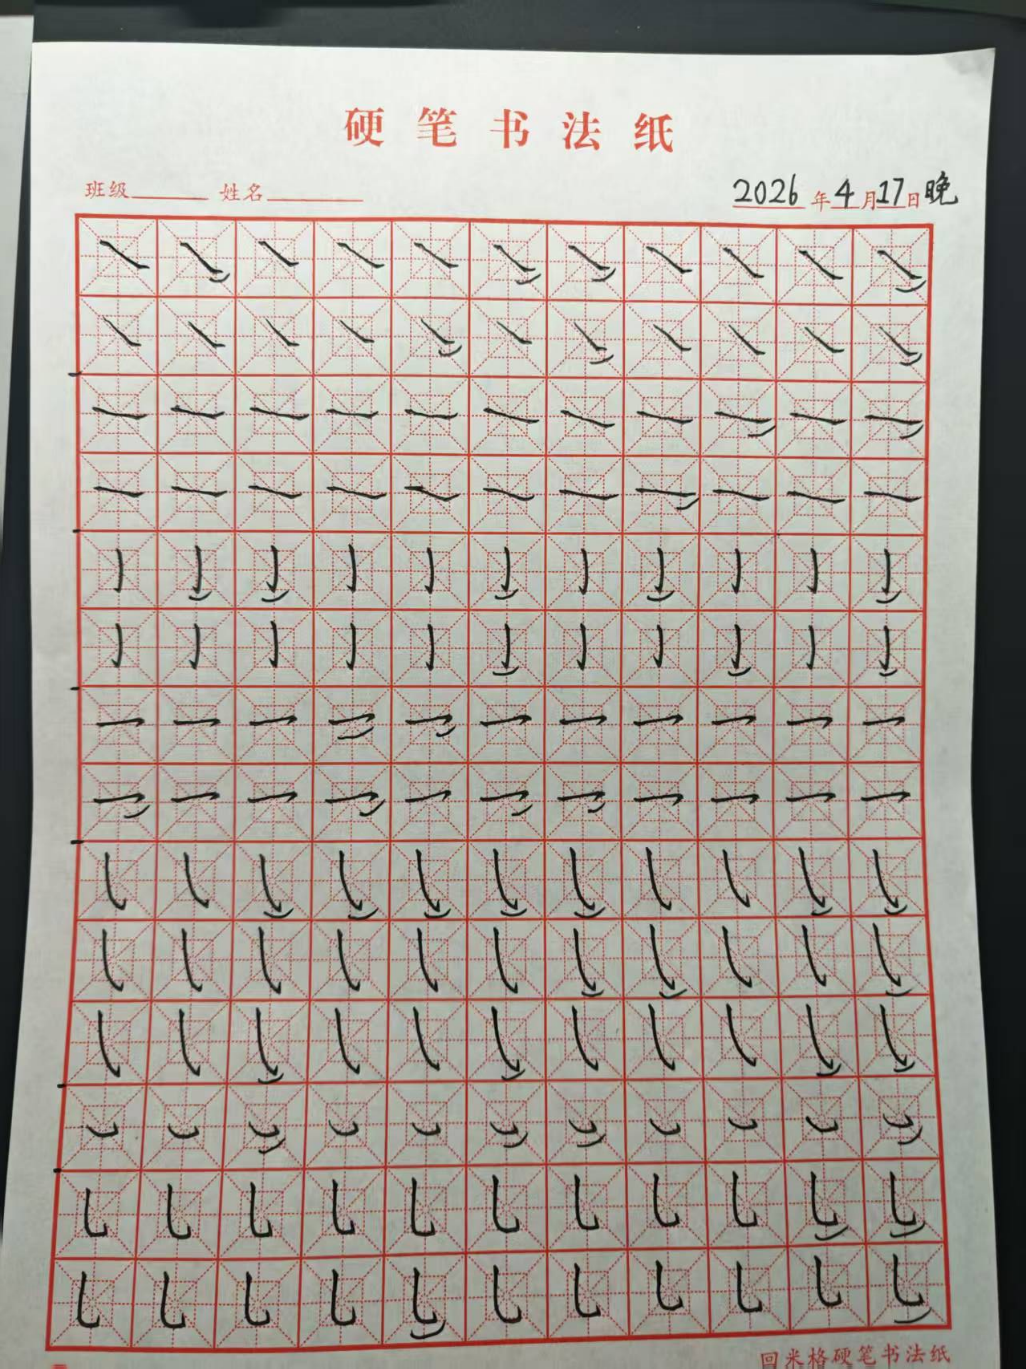 硬笔书法纸
班级 姓名 2026年4月17日晚
回米格硬笔书法纸